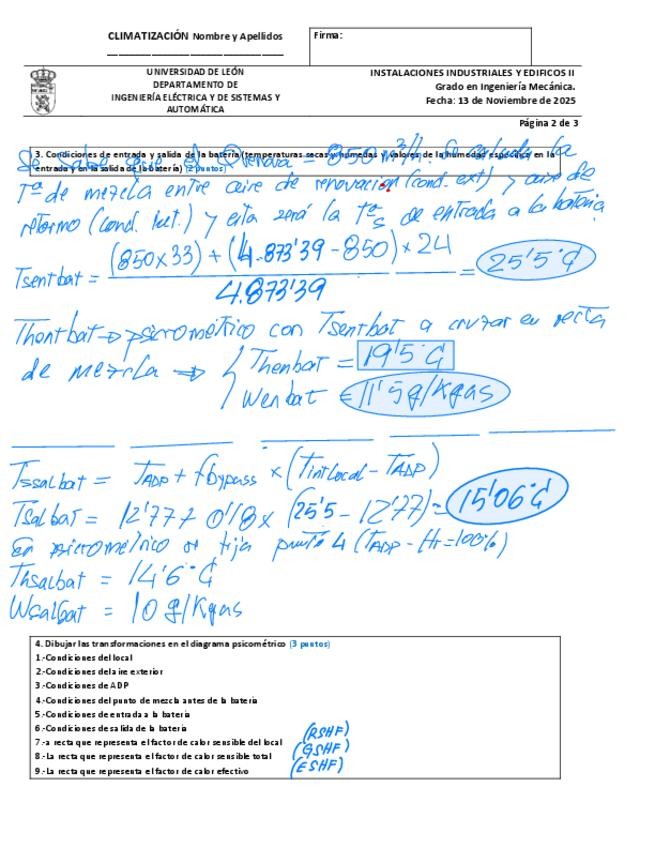 CLIMATIZACIÓN Nombre y Apellidos
Firma:
UNIVERSIDAD DE LEÓN
DEPARTAMENTO DE
INGENIERÍA ELÉCTRICA Y DE SISTEMAS Y
AUTOMÁTICA
INSTALACIONES INDUSTRIALES Y EDIFICOS II
Grado en Ingeniería Mecánica.
Fecha: 13 de Noviembre de 2025
Página 2 de 3
3. Condiciones de entrada y salida de la batería (temperaturas secas y húmedas y valores de la humedad específica en la
entrada y en la salida de la batería) (2 puntos)
Se sabe que el = 850 m³/h. Se calcula la
Tª de mezcla entre aire de renovación (cond. ext) y aire de
retorno (cond. int.) y esta será la Tªs de entrada a la batería
Tsentbat = (850x33) + (4.873'39 - 850) x 24 / 4.873'39 = 25'5°C
Thentbat → psicrométrico con Tsentbat a cruzar en recta
de mezcla → { Thenbat = 19'5°C
Wenbat = 11'5g/Kgas
Tssalbat = TADP + fbypass x (Tintlocal - TADP)
Tsalbat = 12'77 + 0'18x (25'5 - 12'77) = 15'06°C
En psicrométrico se fija punto 4 (TADP - Hr=100%)
Thsalbat = 14'6°C
Wsalbat = 10 g/Kgas
4. Dibujar las transformaciones en el diagrama psicométrico (3 puntos)
1.-Condiciones del local
2.-Condiciones del aire exterior
3.-Condiciones de ADP
4.-Condiciones del punto de mezcla antes de la batería
5.-Condiciones de entrada a la batería
6.-Condiciones de salida de la batería
7.-a recta que representa el factor de calor sensible del local (RSHF)
8.-La recta que representa el factor de calor sensible total (GSHF)
9.-La recta que representa el factor de calor efectivo (ESHF)